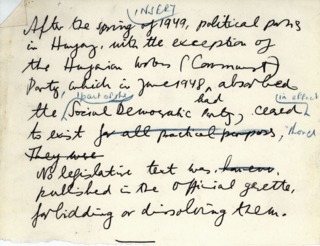 INSERT
After the spring of 1949, political parties
in Hungary, with the exception of
the Hungarian Workers (Communist)
Party, which in June 1948 had absorbed
the (part of the) Social Democratic Party, ceased in effect
to exist for all practical purposes, though
They were
No legislative text was however
published in the Official gazette,
forbidding or dissolving them.